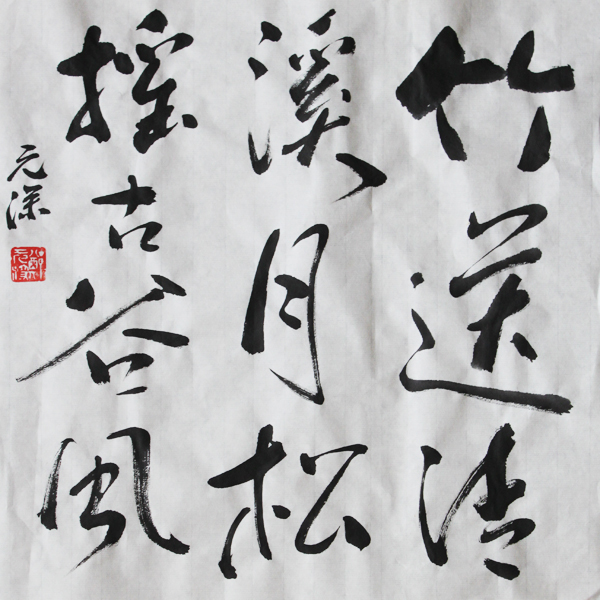 竹送清
溪月松
搖古谷風
元深